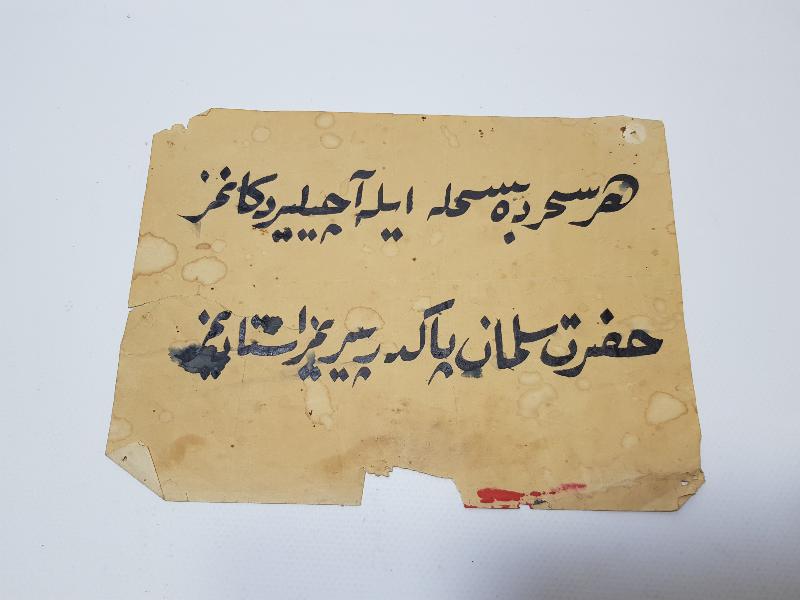 هر سحرده بسمله ایله آچیلیر دكانمز
حضرت سلمان پاكدر پیریمز استادیمز